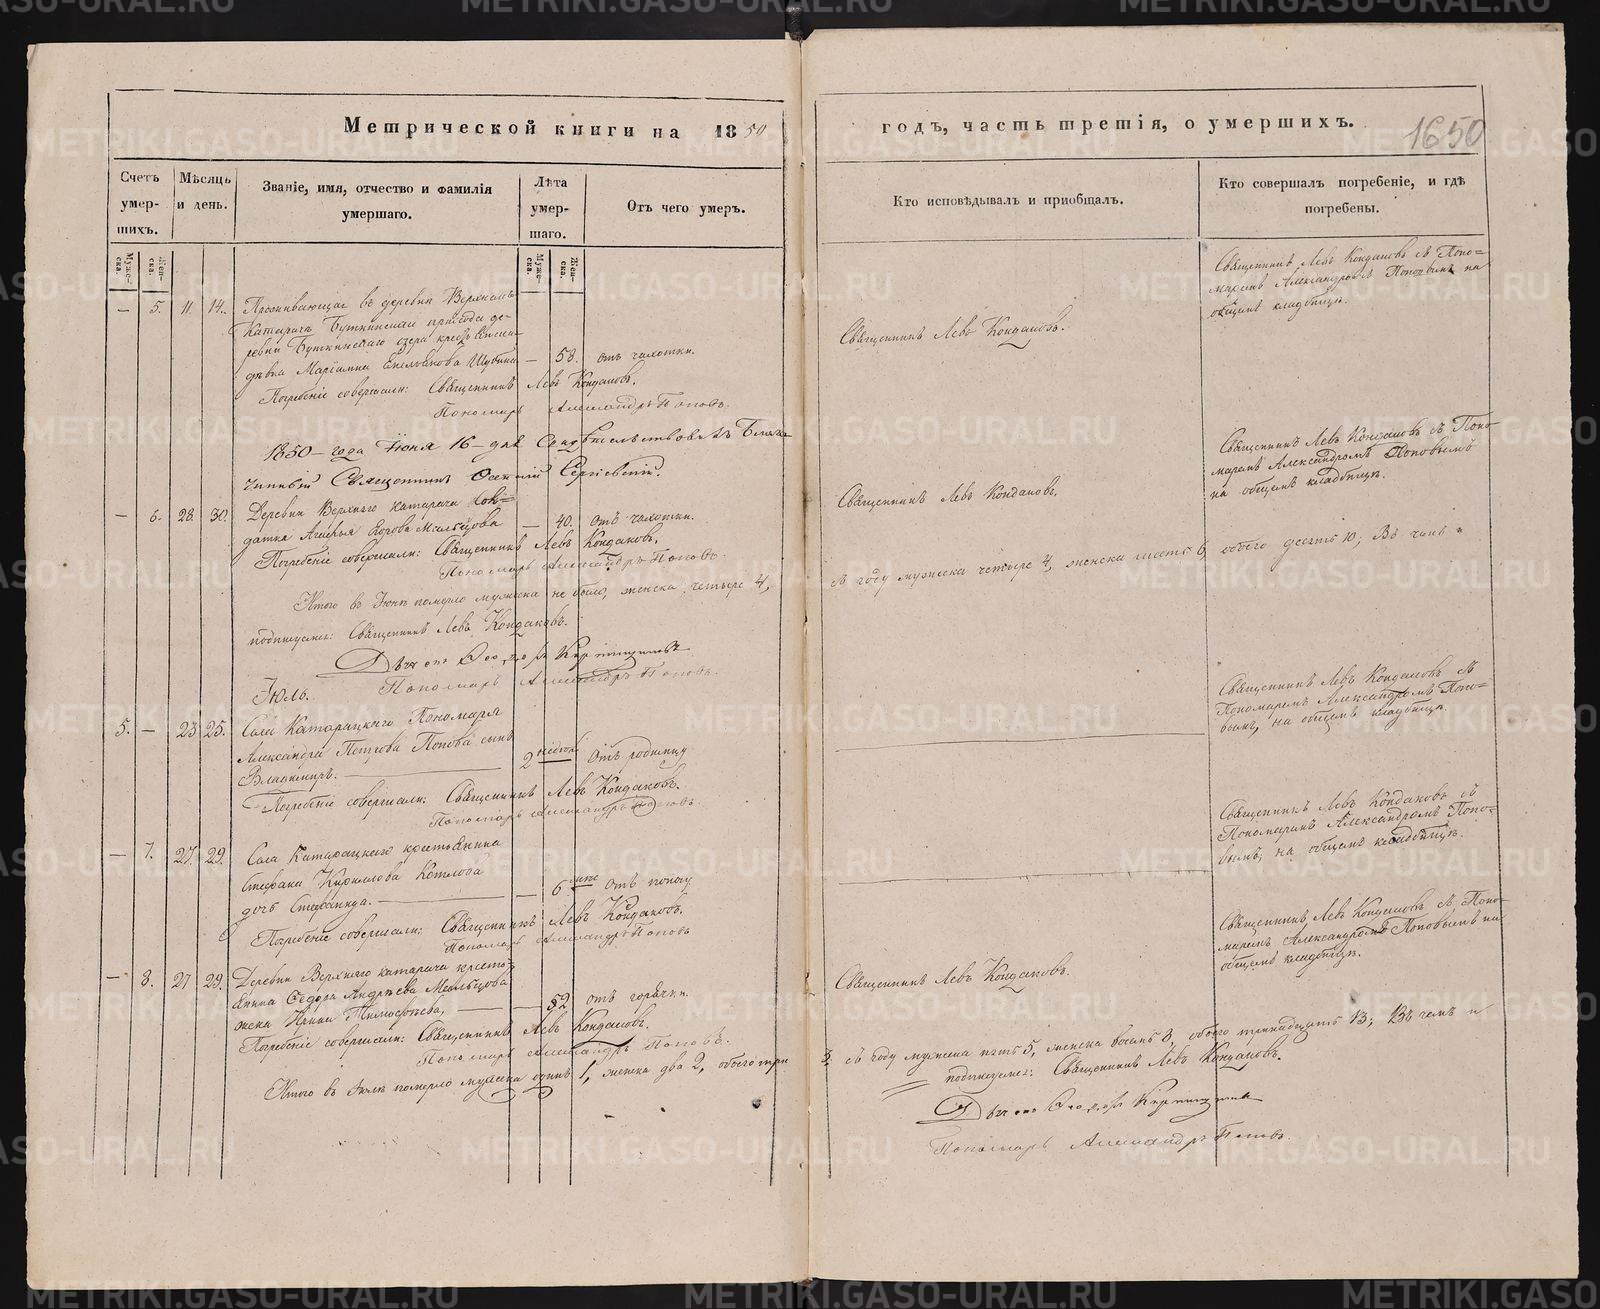 Метрической книги на 1850
годъ, часть третія, о умершихъ.
1650
Счетъ умер-шихъ.
Мѣсяцъ и день.
Званіе, имя, отчество и фамилія умершаго.
Лѣта умер-шаго.
Отъ чего умеръ.
Кто исповѣдывалъ и пріобщалъ.
Кто совершалъ погребеніе, и гдѣ погребены.
Муже-ска.
Жен-ска.
Муже-ска.
Жен-ска.
— 5. 11. 14. Проживающая въ деревни Верхнемъ
Катарачѣ Буткинскаго прихода де-
ревни Буткинскаго озера
Шубина — 58. отъ чахотки.
Погребеніе совершали: Священникъ Левъ Кондаковъ.
Пономарь Александръ Поповъ.
Священникъ Левъ Кондаковъ.
Священникъ Левъ Кондаковъ съ Поно-
маремъ Александромъ Поповымъ на
общемъ кладбищѣ.
1850 года Іюня 16 дня Свидѣтельствовалъ Благо-
чинный Священникъ Сергіевскій.
— 6. 28. 30. Деревни Верхняго Катарача Сол-
датка Егорова Мальцова — 40. отъ чахотки.
Погребеніе совершали: Священникъ Левъ Кондаковъ.
Пономарь Александръ Поповъ.
Священникъ Левъ Кондаковъ.
Священникъ Левъ Кондаковъ съ Поно-
маремъ Александромъ Поповымъ
на общемъ кладбищѣ.
Итого въ Іюнѣ померло мужска не было, женска четыре 4,
съ году мужска четыре 4, женска шесть 6, обоего десять 10; Въ чемъ и
подписуемся: Священникъ Левъ Кондаковъ.
Пономарь Александръ Поповъ.
Іюль.
5. — 23 25. Села Катарацкаго Пономаря
Александра Петрова Попова сынъ
Владимиръ. 2 недѣль отъ родимцу
Погребеніе совершали: Священникъ Левъ Кондаковъ.
Пономарь Александръ Поповъ.
Священникъ Левъ Кондаковъ съ
Пономаремъ Александромъ Попо-
вымъ, на общемъ кладбищѣ.
— 7. 27. 29. Села Катарацкаго крестьянина
Стефана Кирилова Котлова
дочь Стефанида. — 6 отъ поносу
Погребеніе совершали: Священникъ Левъ Кондаковъ.
Пономарь Александръ Поповъ
Священникъ Левъ Кондаковъ съ
Пономаремъ Александромъ Попо-
вымъ, на общемъ кладбищѣ.
— 8. 27 29. Деревни Верхняго Катарача кресть-
янина Ѳедора Андрѣева Мальцова
жена Ирина Тимоѳеева, — 52 отъ горячки.
Погребеніе совершали: Священникъ Левъ Кондаковъ.
Пономарь Александръ Поповъ.
Священникъ Левъ Кондаковъ.
Священникъ Левъ Кондаковъ съ Поно-
маремъ Александромъ Поповымъ на
общемъ кладбищѣ.
Итого въ Іюлѣ померло мужска одинъ 1, женска два 2, обоего три
3, съ году мужска пять 5, женска восемь 8, обоего тринадцать 13; Въ чемъ и
подписуемся: Священникъ Левъ Кондаковъ.
Пономарь Александръ Поповъ.
METRIKI.GASO-URAL.RU